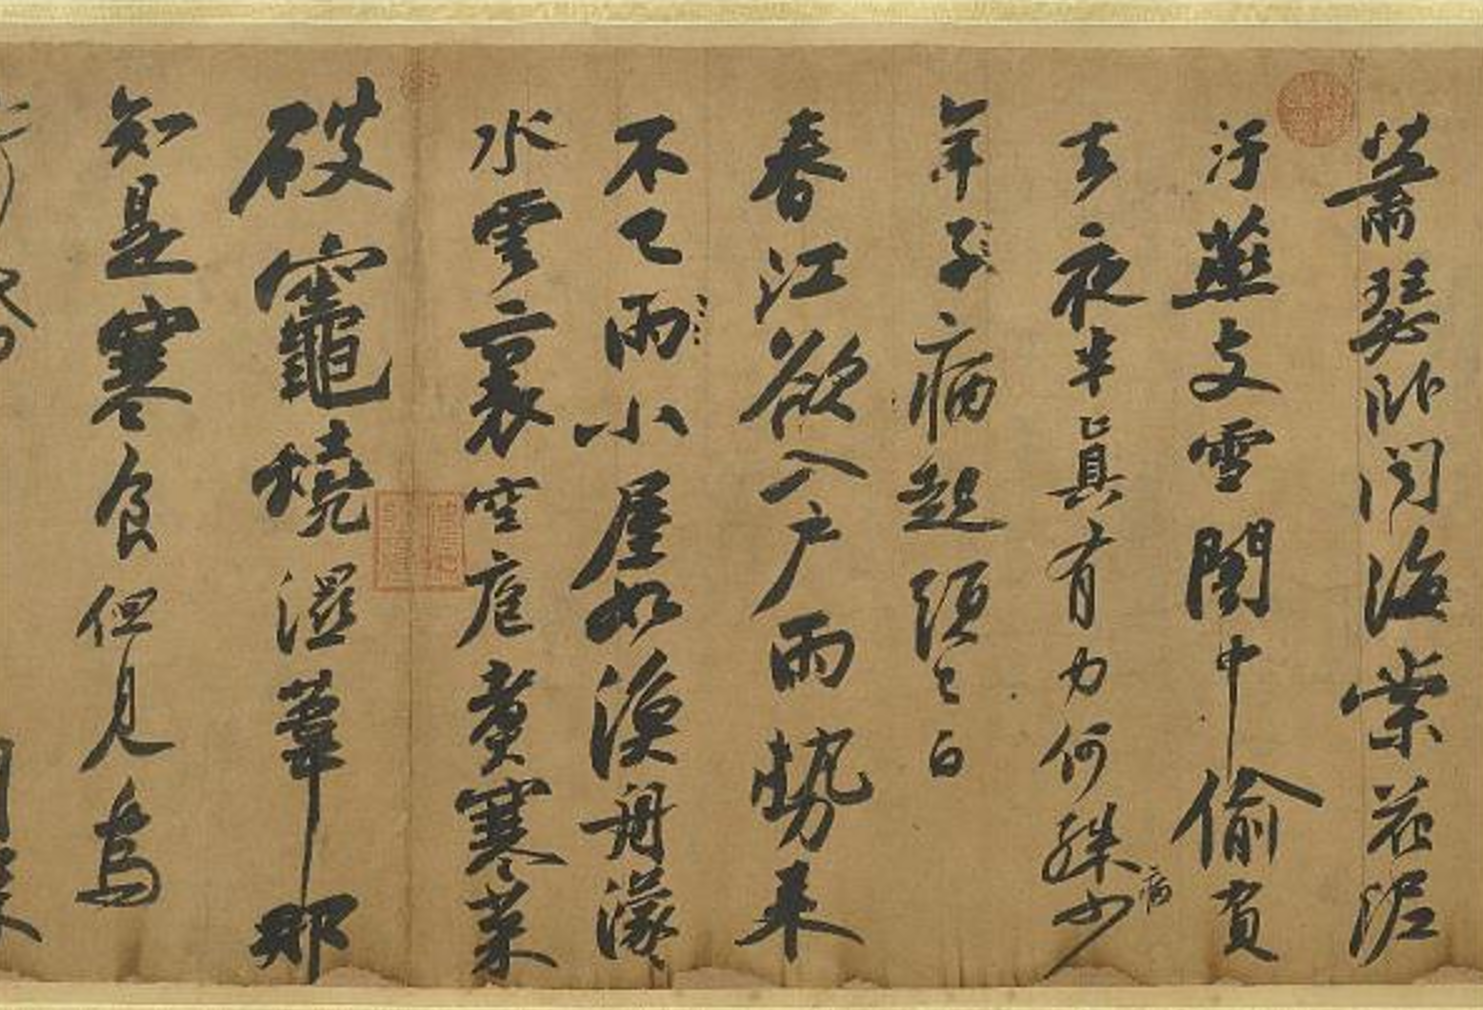 蕭瑟卧聞海棠花泥
汙燕支雪闇中偷負
去夜半真有力何殊少
病
年子病起頭々白
春江欲入戶雨勢来
不已雨小屋如漁舟濛
水雲裏空庖煑寒菜
破竈燒濕葦那
知是寒食但見烏